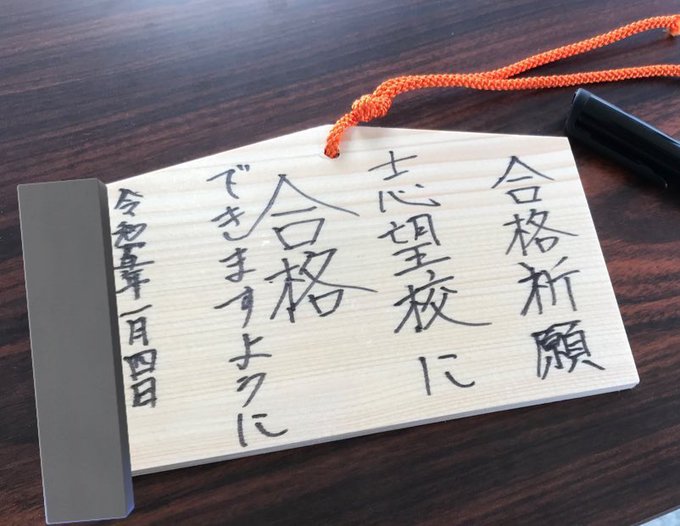 合格祈願
志望校に
合格
できますように
令和五年一月四日